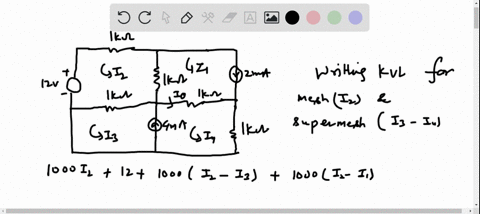 1kΩ
I1
I2
1kΩ
2mA
12V
+
-
1kΩ
I0
1kΩ
I3
4mA
I4
1kΩ
Writing KVL for
mesh (I2) &
supermesh (I3 - I4)
1000 I2 + 12 + 1000 (I2 - I3) + 1000 (I2 - I1)